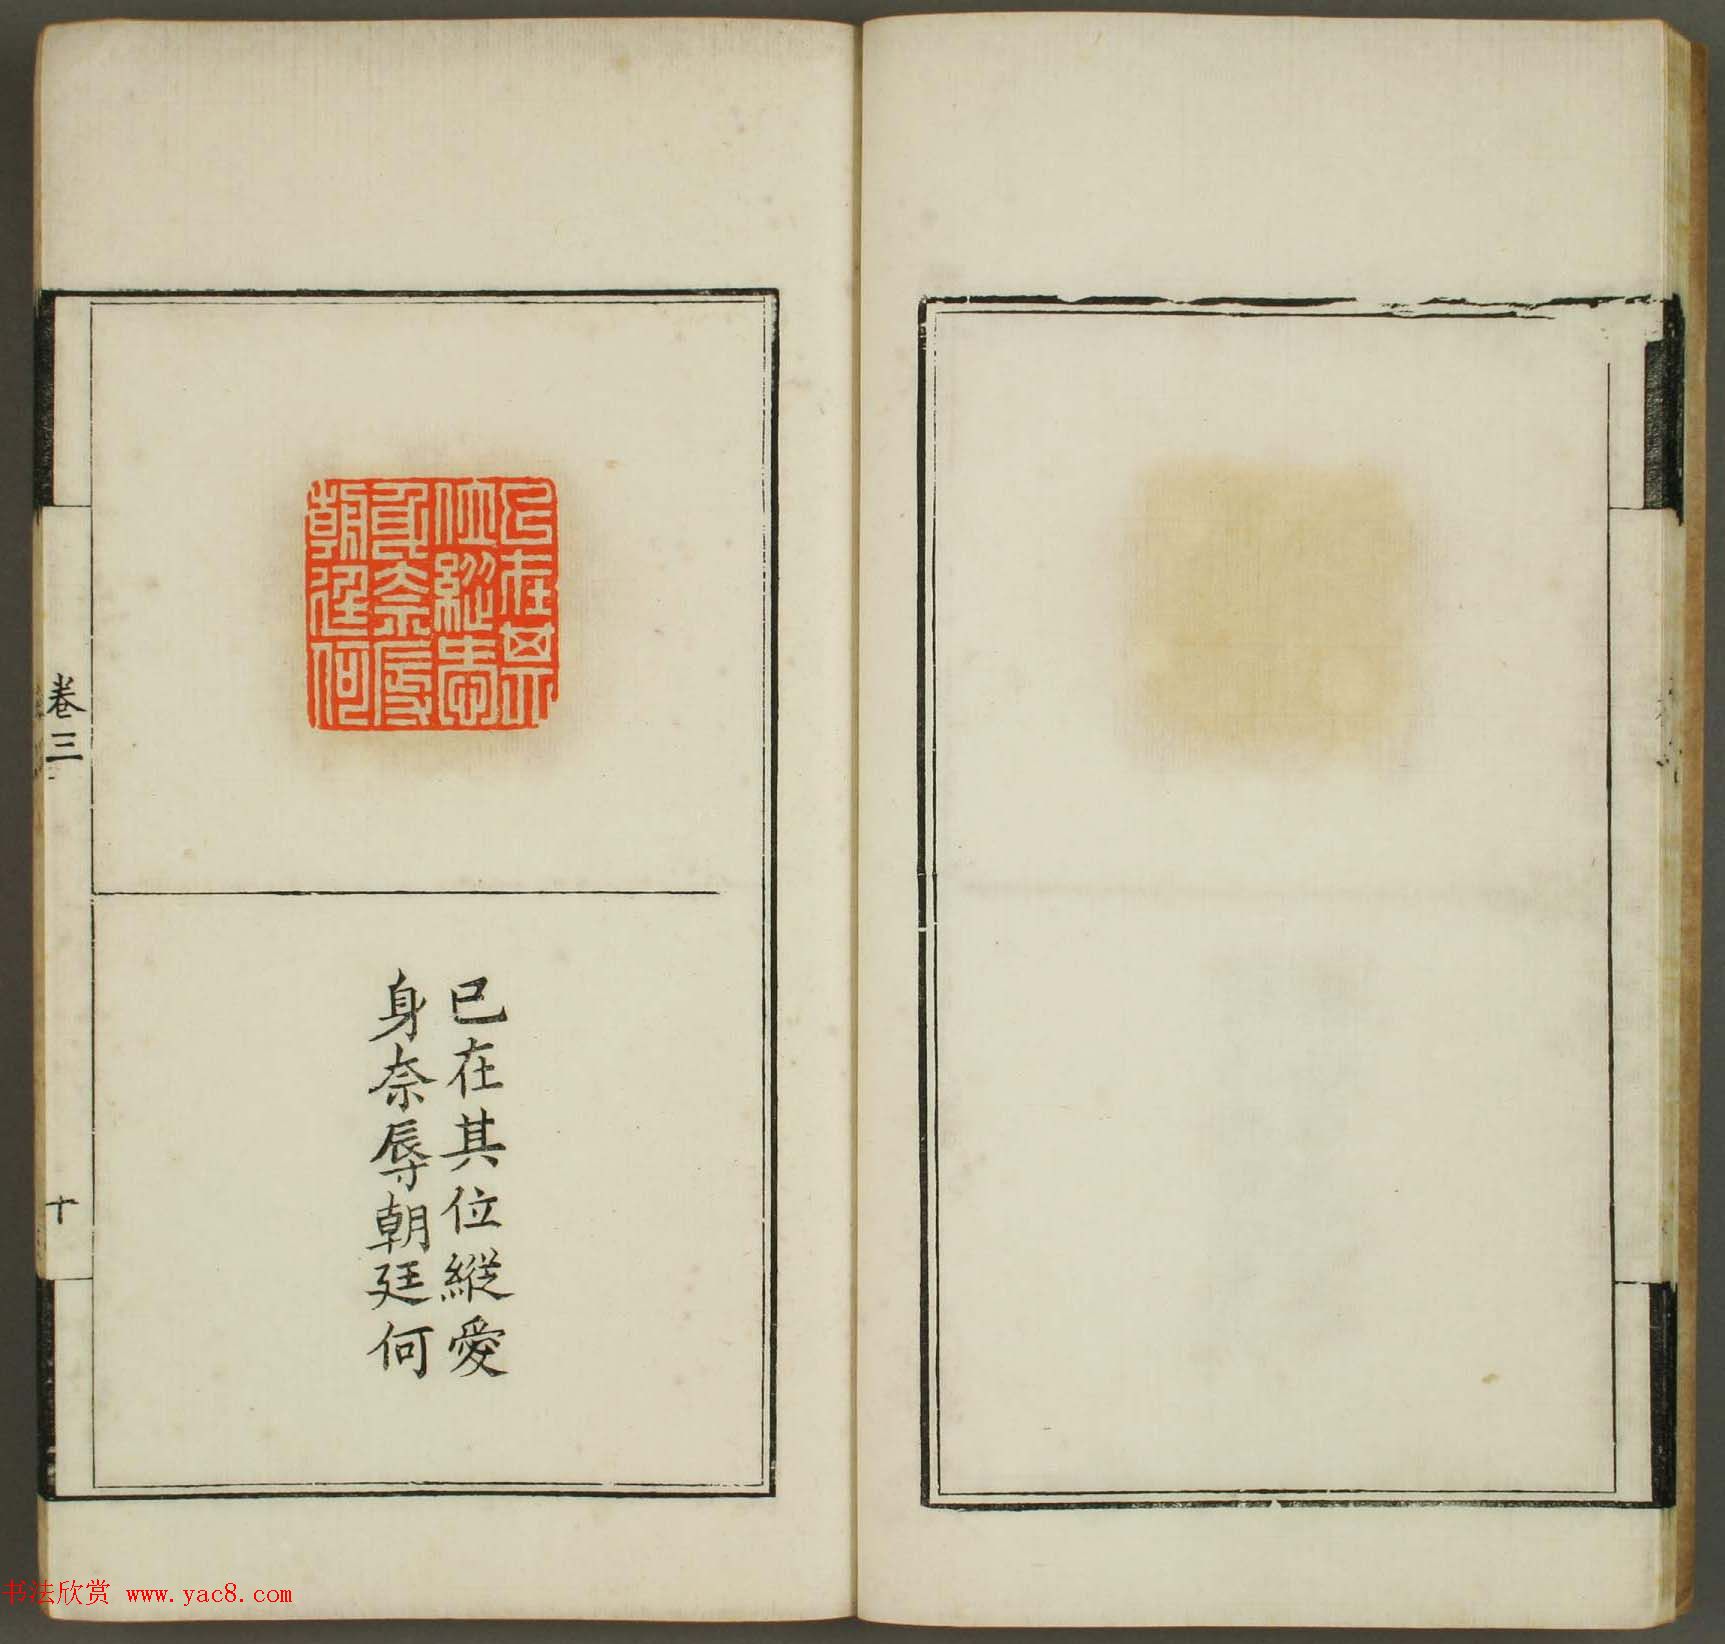 已在其位縱愛
身奈辱朝廷何
已在其
位縱愛
身奈辱
朝廷何
卷三
十
书法欣赏 www.yac8.com